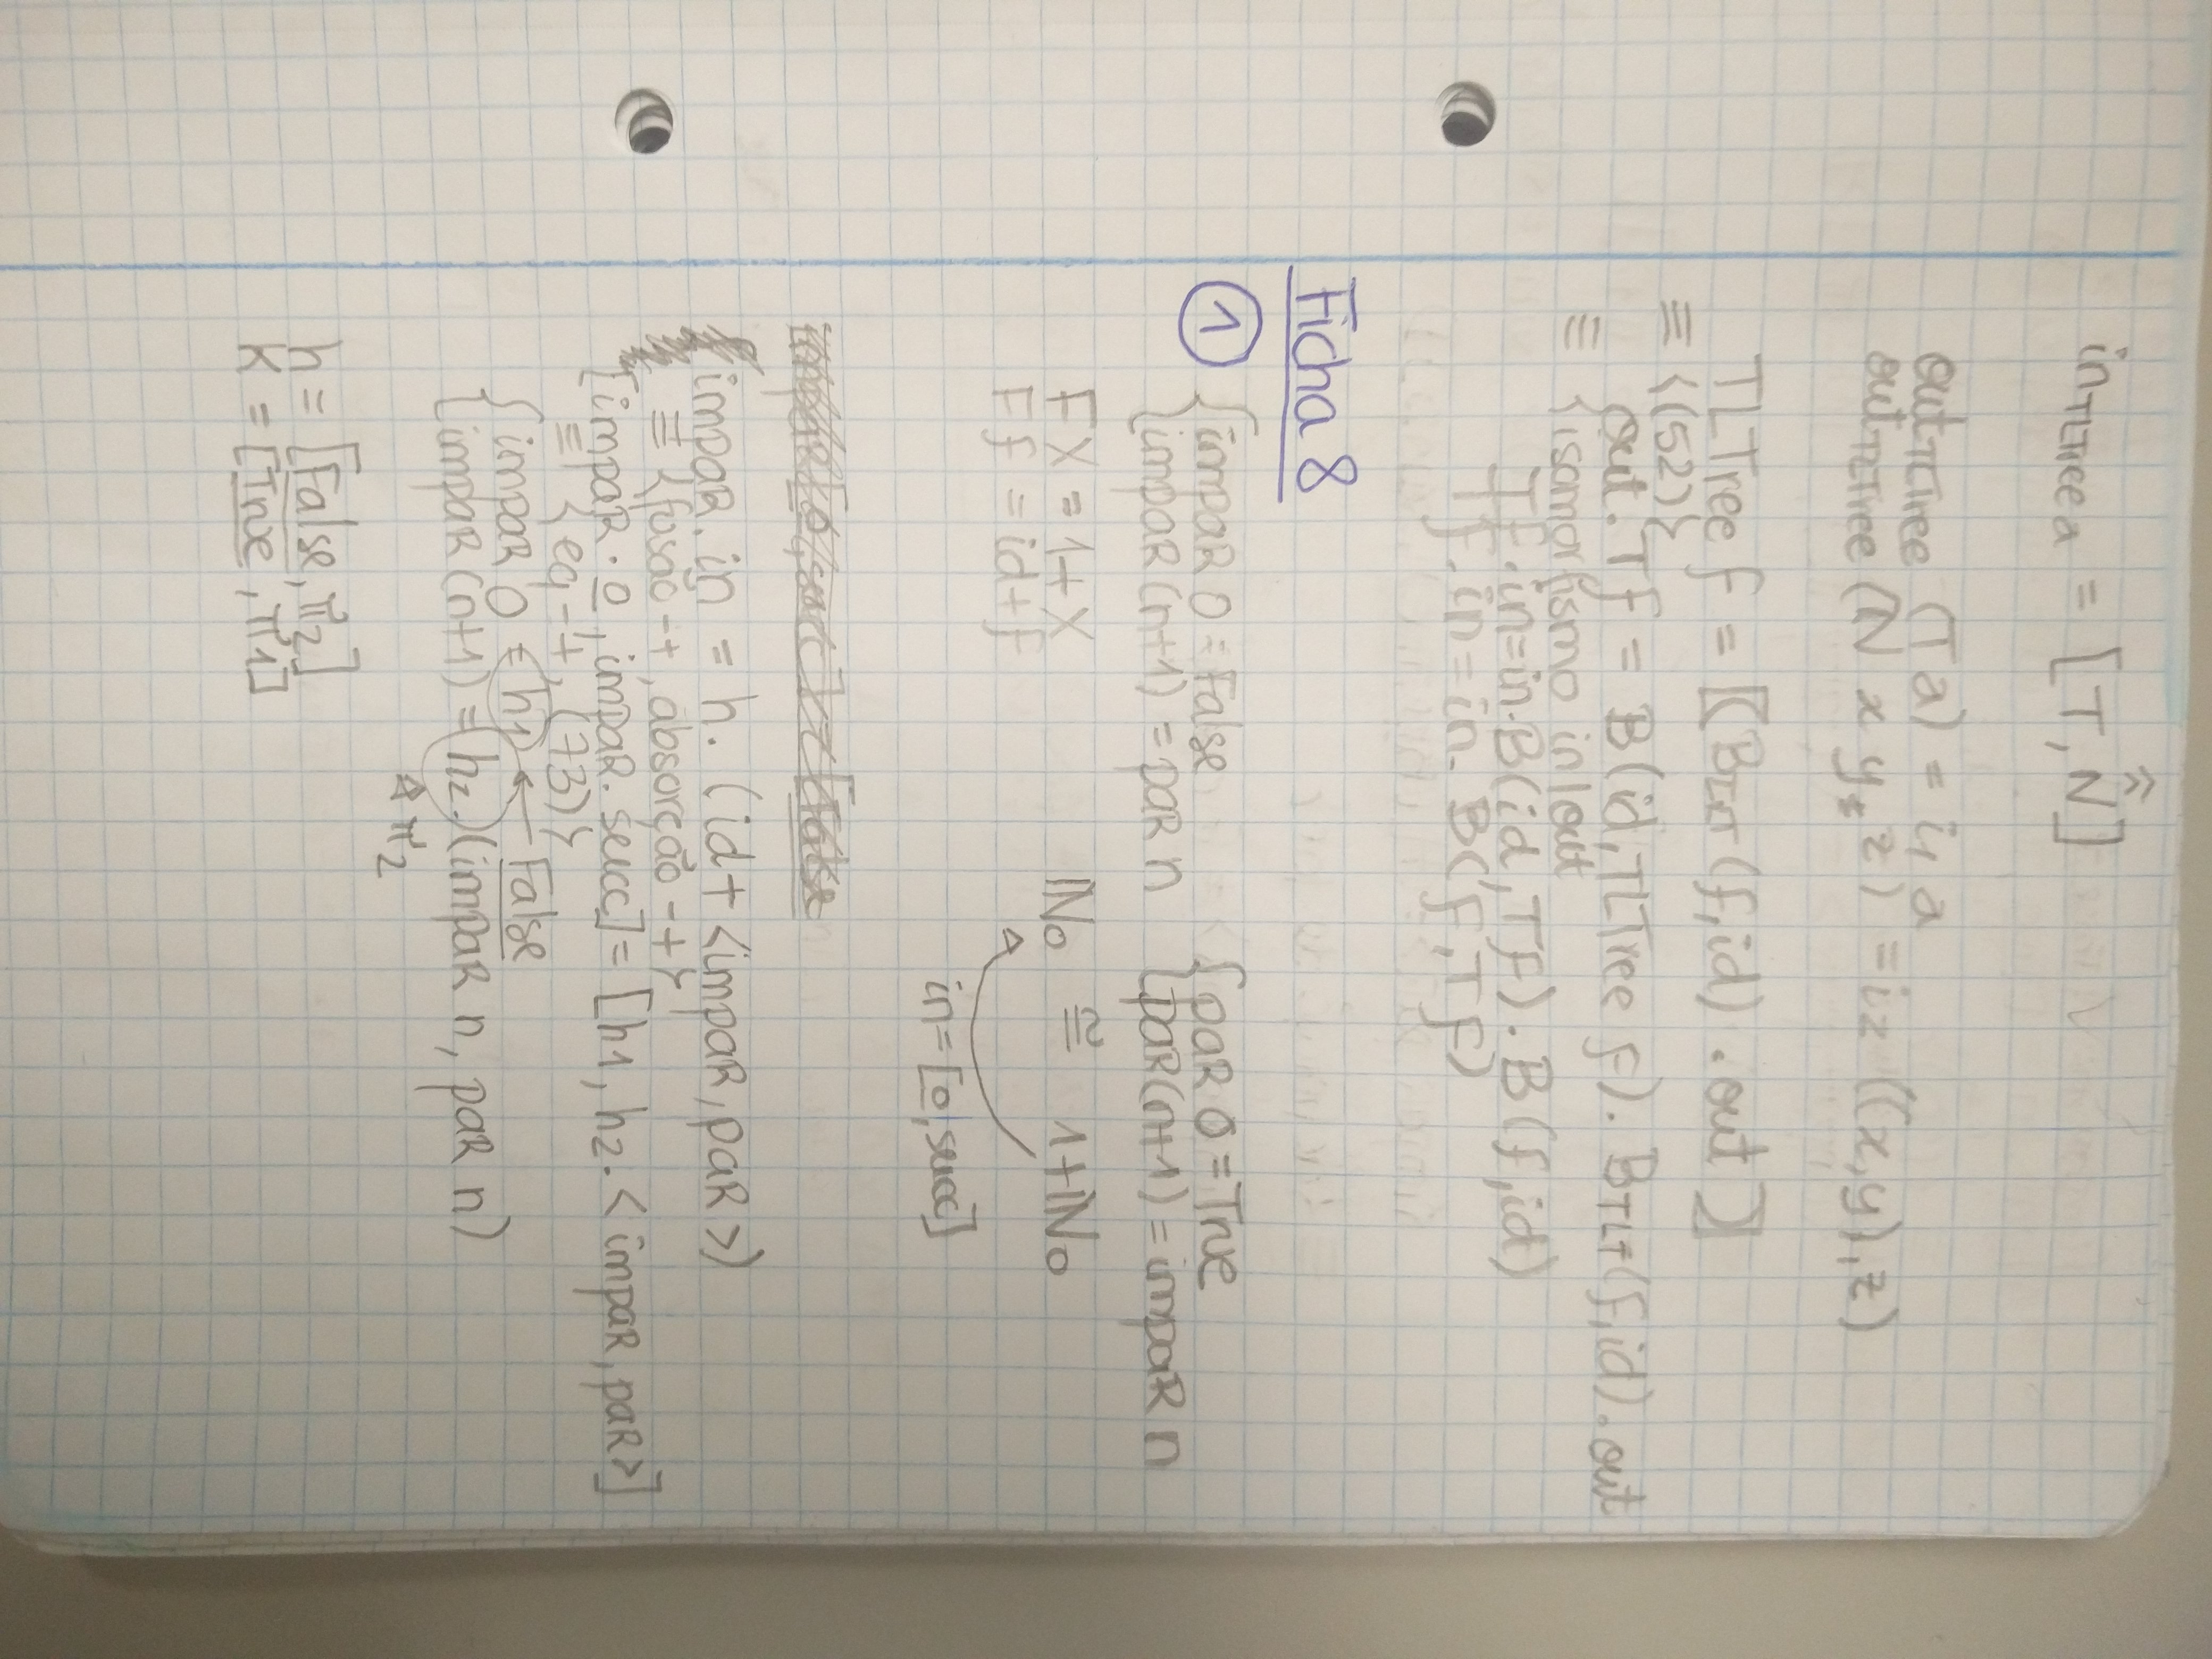 in TLTree a = [T, N̂̂]
out TLTree (T a) = i1 a
out TLTree (N x y z) = i2 ((x,y),z)
TLTree f = [(B TLT (f,id) . out )]
≡ {(52)}
out . Tf = B(id, TLTree f) . B TLT (f,id) . out
≡ {isomorfismo in/out
Tf . in = in . B(id, Tf) . B(f,id)
Tf . in = in . B(f, Tf)
Ficha 8
1 { impar 0 = False { par 0 = True
impar (n+1) = par n par(n+1) = impar n
F X = 1+X ℕ0 ≅ 1+ℕ0
F f = id+f
in = [0, succ]
impar . in = h . (id + <impar, par>)
≡ {fusão -+, absorção -+}
[impar . 0, impar . succ] = [h1, h2 . <impar, par>]
≡ {eq -+, (73)}
{ impar 0 = h1 ← False
impar (n+1) = h2 . (impar n, par n)
π2
h = [False, π2]
K = [True, π1]